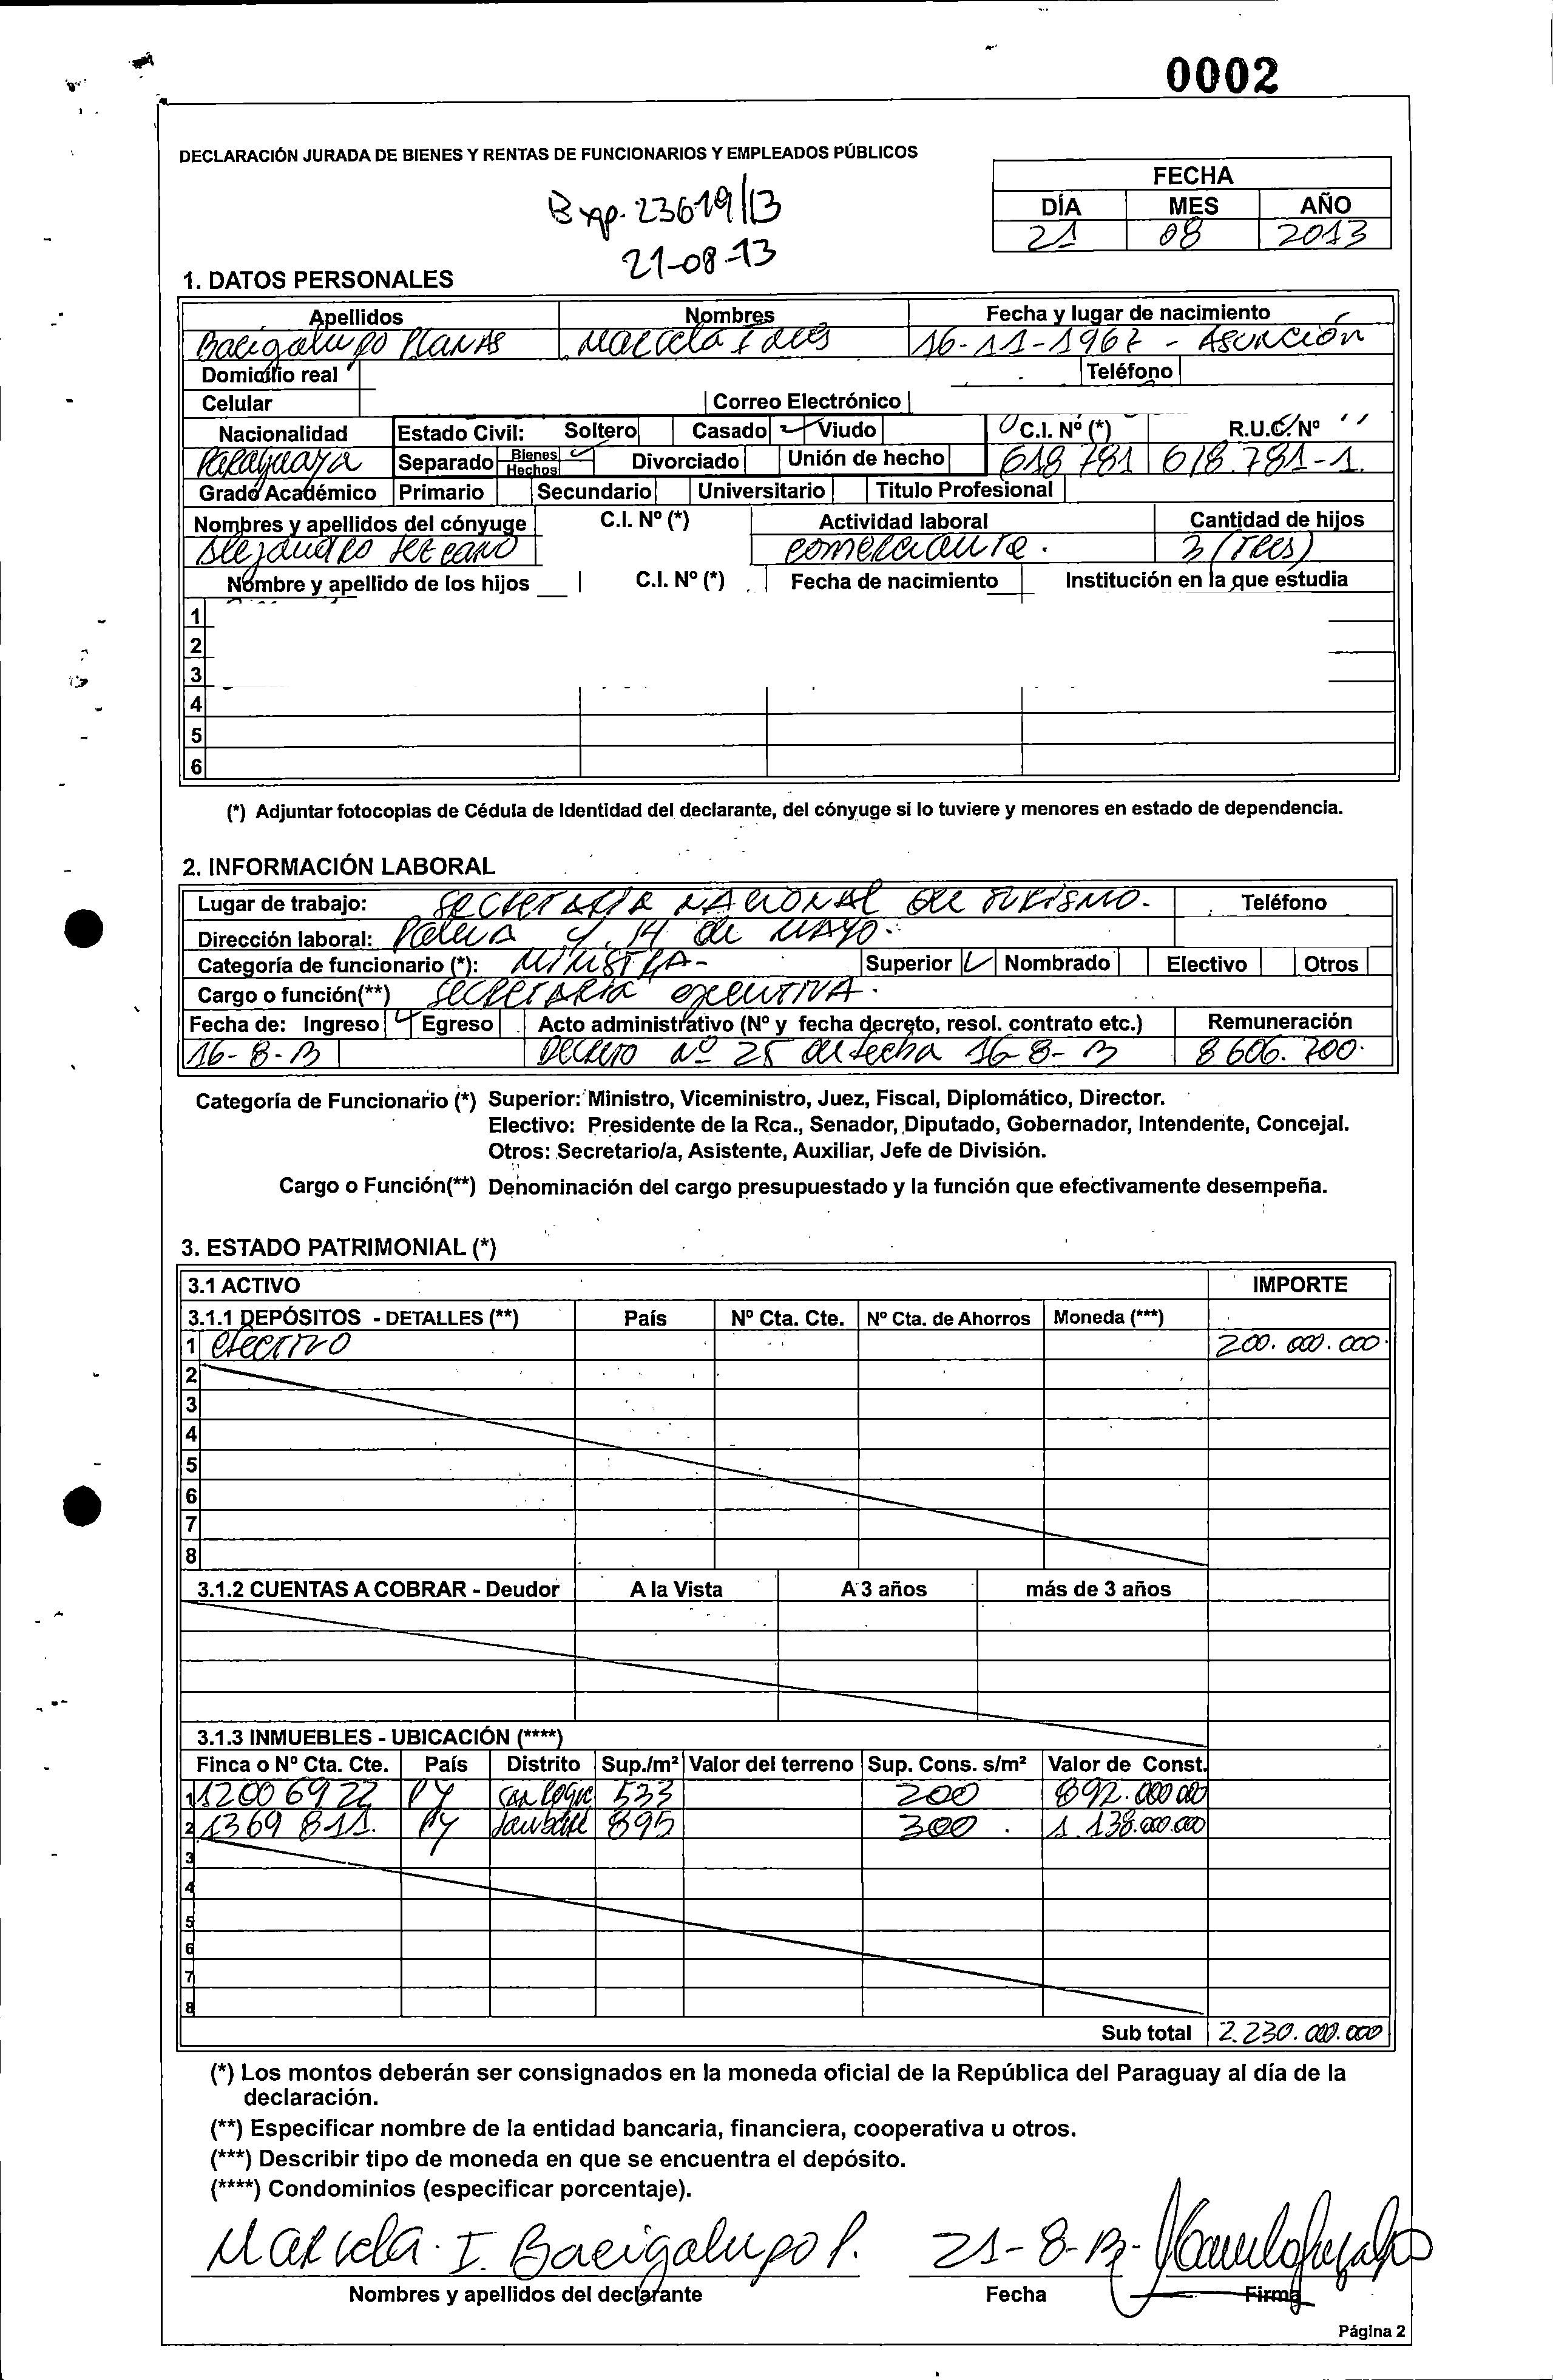 0002
DECLARACIÓN JURADA DE BIENES Y RENTAS DE FUNCIONARIOS Y EMPLEADOS PÚBLICOS
FECHA
DÍA MES AÑO
21 08 2013
Exp. 23619/13
21-08-13
1. DATOS PERSONALES
Apellidos Nombres Fecha y lugar de nacimiento
Bacigalupo Planas Marcela Ines 16-11-1967 - Asunción
Domicilio real Teléfono
Celular Correo Electrónico
Nacionalidad Estado Civil: Soltero Casado Viudo C.I. Nº (*) R.U.C/Nº
Paraguaya Separado Bienes Hechos Divorciado Unión de hecho 618 781 618.781-1.
Grado Académico Primario Secundario Universitario Titulo Profesional
Nombres y apellidos del cónyuge C.I. Nº (*) Actividad laboral Cantidad de hijos
Alejandro comerciante. 3 (tres)
Nombre y apellido de los hijos C.I. Nº (*) Fecha de nacimiento Institución en la que estudia
1
2
3
4
5
6
(*) Adjuntar fotocopias de Cédula de Identidad del declarante, del cónyuge si lo tuviere y menores en estado de dependencia.
2. INFORMACIÓN LABORAL
Lugar de trabajo: Secretaria Nacional de Turismo. Teléfono
Dirección laboral: Palma y 14 de Mayo.
Categoría de funcionario (*): Ministra- Superior Nombrado Electivo Otros
Cargo o función(**) Secretaria ejecutiva.
Fecha de: Ingreso Egreso Acto administrativo (Nº y fecha decreto, resol. contrato etc.) Remuneración
16-8-13 Decreto nº 25 de fecha 16-8-13 8 606.700.
Categoría de Funcionario (*) Superior: Ministro, Viceministro, Juez, Fiscal, Diplomático, Director.
Electivo: Presidente de la Rca., Senador, Diputado, Gobernador, Intendente, Concejal.
Otros: Secretario/a, Asistente, Auxiliar, Jefe de División.
Cargo o Función(**) Denominación del cargo presupuestado y la función que efectivamente desempeña.
3. ESTADO PATRIMONIAL (*)
3.1 ACTIVO IMPORTE
3.1.1 DEPÓSITOS - DETALLES (**) País Nº Cta. Cte. Nº Cta. de Ahorros Moneda (***)
1 efectivo 200.000.000.
2
3
4
5
6
7
8
3.1.2 CUENTAS A COBRAR - Deudor A la Vista A 3 años más de 3 años
3.1.3 INMUEBLES - UBICACIÓN (****)
Finca o Nº Cta. Cte. País Distrito Sup./m² Valor del terreno Sup. Cons. s/m² Valor de Const.
1 12006922 PY San Roque 533 200 892.000 000
2 1369 811. PY Lambaré 895 300. 1.138.000.000
3
4
5
6
7
8
Sub total 2.230.000.000
(*) Los montos deberán ser consignados en la moneda oficial de la República del Paraguay al día de la
declaración.
(**) Especificar nombre de la entidad bancaria, financiera, cooperativa u otros.
(***) Describir tipo de moneda en que se encuentra el depósito.
(****) Condominios (especificar porcentaje).
Marcela. I. Bacigalupo P. 21-8-13-
Nombres y apellidos del declarante Fecha Firma
Página 2